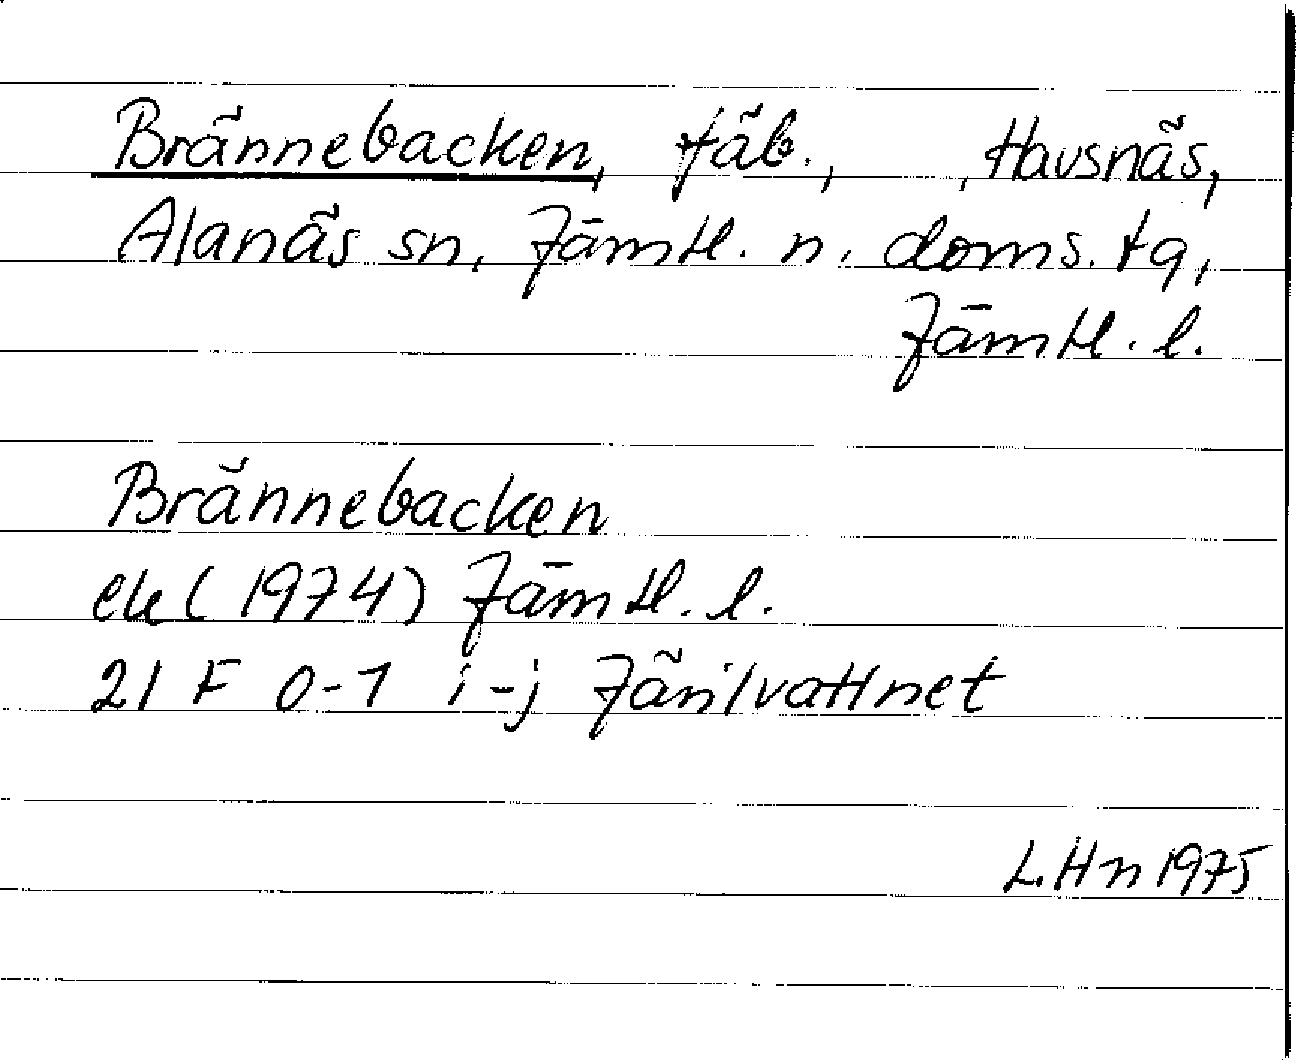 Brännebacken, fäb., , Havsnäs,
Alanäs sn, Jämtl. n. doms. tg,
Jämtl. l.
Brännebacken
ek (1974) Jämtl. l.
21 F 0-1 i-j Järilvattnet
LHn 1975